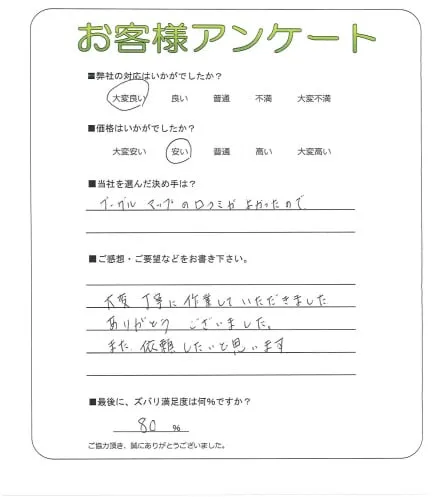 お客様アンケート
■弊社の対応はいかがでしたか？
大変良い 良い 普通 不満 大変不満
■価格はいかがでしたか？
大変安い 安い 普通 高い 大変高い
■当社を選んだ決め手は？
グーグル マップの口コミがよかったので
■ご感想・ご要望などをお書き下さい。
大変 丁寧に 作業して いただきました
ありがとう ございました。
また 依頼したいと思います
■最後に、ズバリ満足度は何％ですか？
80 ％
ご協力頂き、誠にありがとうございました。